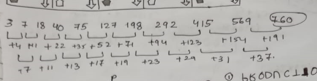 3 7 18 40 75 127 198 292 415 569 760
+4 +11 +22 +35 +52 +71 +94 +123 +154 +191
+7 +11 +13 +17 +19 +23 +29 +31 +37
P